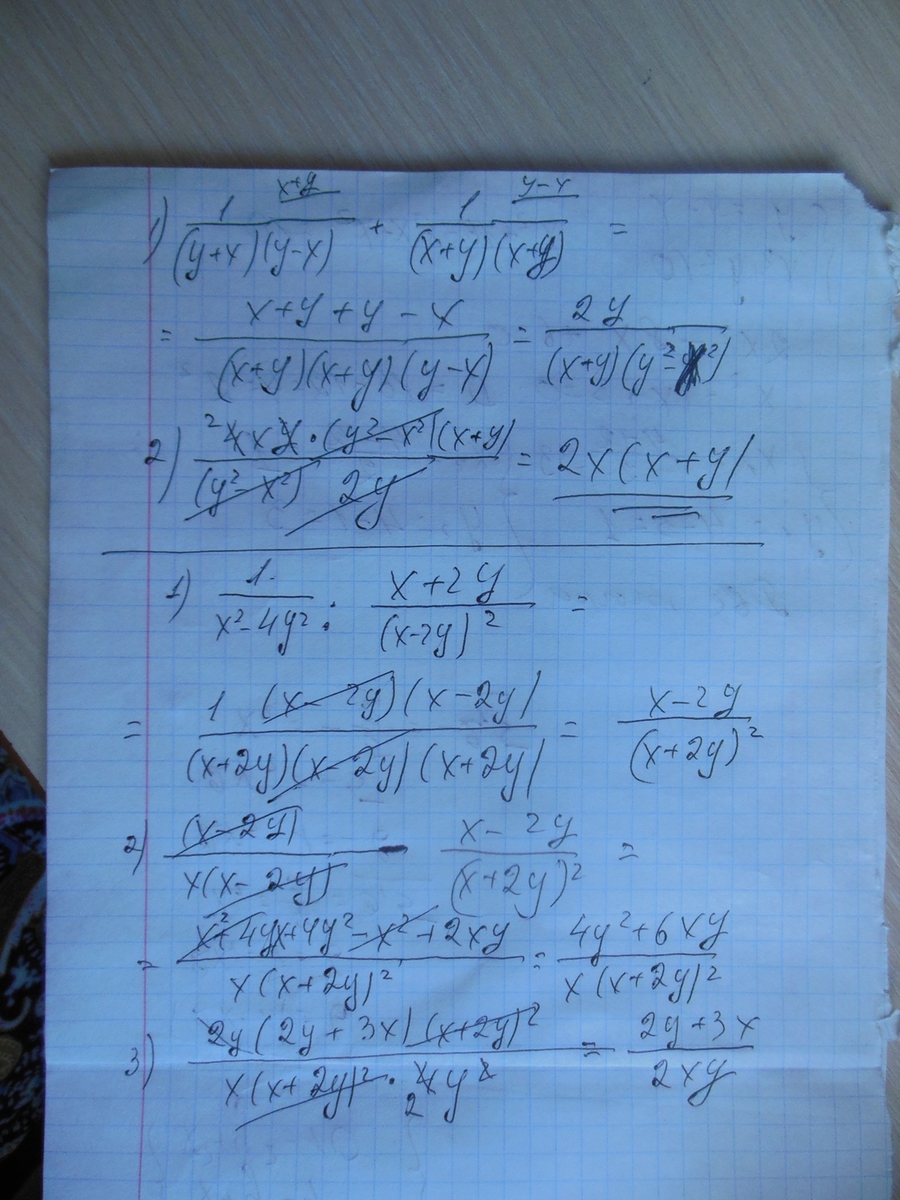 1) 1/((y+x)(y-x)) ^(x+y) + 1/((x+y)(x+y)) ^(y-x) =
= (x+y+y-x)/((x+y)(x+y)(y-x)) = 2y/((x+y)(y²-x²))
2) (²4xy·(y²-x²)(x+y))/((y²-x²) 2y) = 2x(x+y)
1) 1/(x²-4y²) : (x+2y)/(x-2y)² =
= (1 (x-2y)(x-2y))/((x+2y)(x-2y)(x+2y)) = (x-2y)/(x+2y)²
2) (x-2y)/(x(x-2y)) - (x-2y)/(x+2y)² =
= (x²+4yx+4y²-x²+2xy)/(x(x+2y)²) = (4y²+6xy)/(x(x+2y)²)
3) (2y(2y+3x)(x+2y)²)/(x(x+2y)²·₂4y²) = (2y+3x)/(2xy)